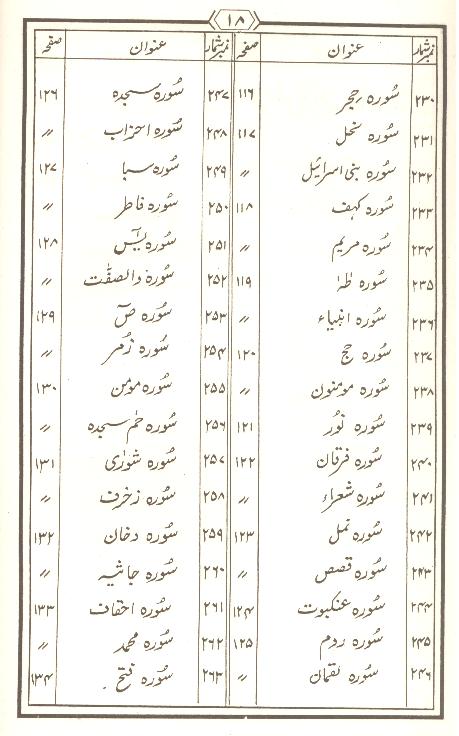 ۱۸
نمبر شمار عنوان صفحہ
۲۳۰ سُورہ حِجر ۱۱۶
۲۳۱ سُورہ نحل ۱۱۷
۲۳۲ سُورہ بنی اسرائیل 〃
۲۳۳ سُورہ کہف ۱۱۸
۲۳۴ سُورہ مریم 〃
۲۳۵ سُورہ طٰہٰ ۱۱۹
۲۳۶ سُورہ انبیاء 〃
۲۳۷ سُورہ حج ۱۲۰
۲۳۸ سُورہ مومنون 〃
۲۳۹ سُورہ نُور ۱۲۱
۲۴۰ سُورہ فرقان ۱۲۲
۲۴۱ سُورہ شعراء 〃
۲۴۲ سُورہ نمل ۱۲۳
۲۴۳ سُورہ قصص 〃
۲۴۴ سُورہ عنکبوت ۱۲۴
۲۴۵ سُورہ روم ۱۲۵
۲۴۶ سُورہ لقمان 〃
نمبر شمار عنوان صفحہ
۲۴۷ سُورہ سجدہ ۱۲۶
۲۴۸ سُورہ احزاب 〃
۲۴۹ سُورہ سبا ۱۲۷
۲۵۰ سُورہ فاطر 〃
۲۵۱ سُورہ یٰسٓ ۱۲۸
۲۵۲ سُورہ والصفّٰت 〃
۲۵۳ سُورہ صٓ ۱۲۹
۲۵۴ سُورہ زُمر 〃
۲۵۵ سُورہ مومن ۱۳۰
۲۵۶ سُورہ حٰم سجدہ 〃
۲۵۷ سُورہ شورٰی ۱۳۱
۲۵۸ سُورہ زخرف 〃
۲۵۹ سُورہ دخان ۱۳۲
۲۶۰ سُورہ جاثیہ 〃
۲۶۱ سُورہ احقاف ۱۳۳
۲۶۲ سُورہ محمد 〃
۲۶۳ سُورہ فتح ۱۳۴